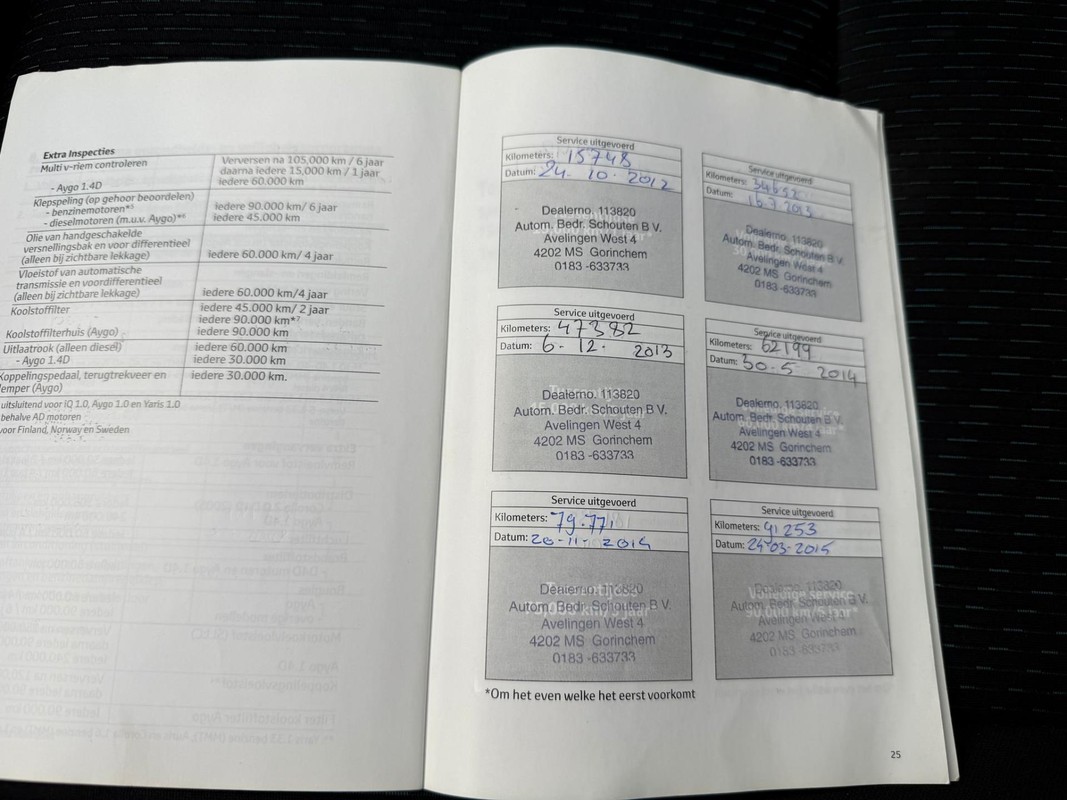 Extra Inspecties
Multi v-riem controleren
Verversen na 105.000 km / 6 jaar
daarna iedere 15.000 km / 1 jaar
- Aygo 1.4D
iedere 60.000 km
Klepspeling (op gehoor beoordelen)
- benzinemotoren*5
iedere 90.000 km/ 6 jaar
- dieselmotoren (m.u.v. Aygo)*6
iedere 45.000 km
Olie van handgeschakelde
versnellingsbak en voor differentieel
(alleen bij zichtbare lekkage)
iedere 60.000 km/ 4 jaar
Vloeistof van automatische
transmissie en voordifferentieel
(alleen bij zichtbare lekkage)
iedere 60.000 km/4 jaar
Koolstoffilter
iedere 45.000 km/ 2 jaar
iedere 90.000 km*7
Koolstoffilterhuis (Aygo)
iedere 90.000 km
Uitlaatrook (alleen diesel)
iedere 60.000 km
- Aygo 1.4D
iedere 30.000 km
Koppelingspedaal, terugtrekveer en
demper (Aygo)
iedere 30.000 km.
uitsluitend voor iQ 1.0, Aygo 1.0 en Yaris 1.0
behalve AD motoren
voor Finland, Norway en Sweden
Service uitgevoerd
Kilometers: 15748
Datum: 24. 10. 2012
Dealerno. 113820
Autom. Bedr. Schouten B V.
Avelingen West 4
4202 MS Gorinchem
0183 -633733
Service uitgevoerd
Kilometers: 34652
Datum: 16.7.2013
Dealerno. 113820
Autom. Bedr. Schouten B V.
Avelingen West 4
4202 MS Gorinchem
0183 -633733
Service uitgevoerd
Kilometers: 47382
Datum: 6. 12. 2013
Dealerno. 113820
Autom. Bedr. Schouten B V.
Avelingen West 4
4202 MS Gorinchem
0183 -633733
Service uitgevoerd
Kilometers: 62199
Datum: 30. 5 2014
Dealerno. 113820
Autom. Bedr. Schouten B V.
Avelingen West 4
4202 MS Gorinchem
0183 -633733
Service uitgevoerd
Kilometers: 79.771
Datum: 20-11-2014
Dealerno. 113820
Autom. Bedr. Schouten B V.
Avelingen West 4
4202 MS Gorinchem
0183 -633733
Service uitgevoerd
Kilometers: 91253
Datum: 24-03-2015
Volledige service
90.000 km/6 jaar*
Dealerno. 113820
Autom. Bedr. Schouten B V.
Avelingen West 4
4202 MS Gorinchem
0183 -633733
*Om het even welke het eerst voorkomt
25